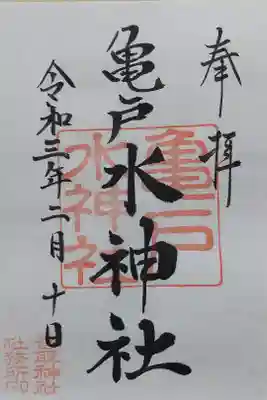 奉拝
亀戸水神社
亀戸
水神社
令和三年二月十日
香取神社
社務所印